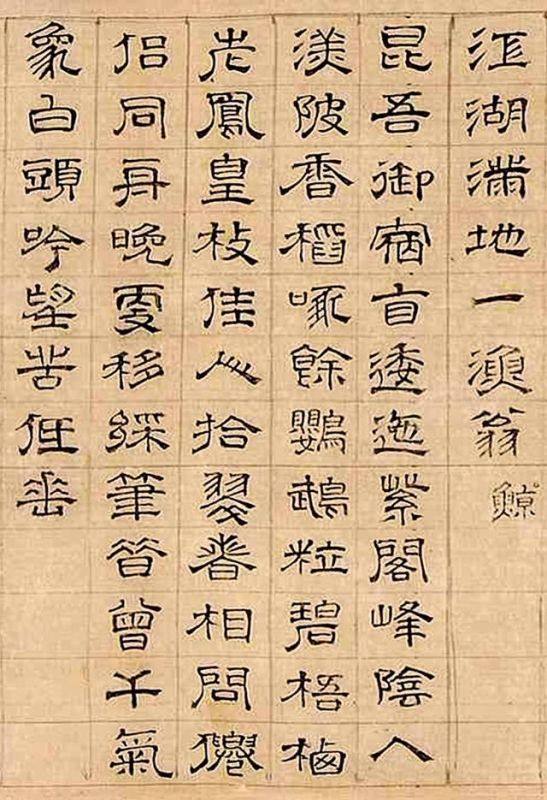 江湖滿地一漁翁鯨
昆吾御宿自逶迤紫閣峰陰入
渼陂香稻啄餘鸚鵡粒碧梧栖
老鳳皇枝佳人拾翠春相問僊
侶同舟晚更移綵筆昔曾干氣
象白頭吟望苦低垂